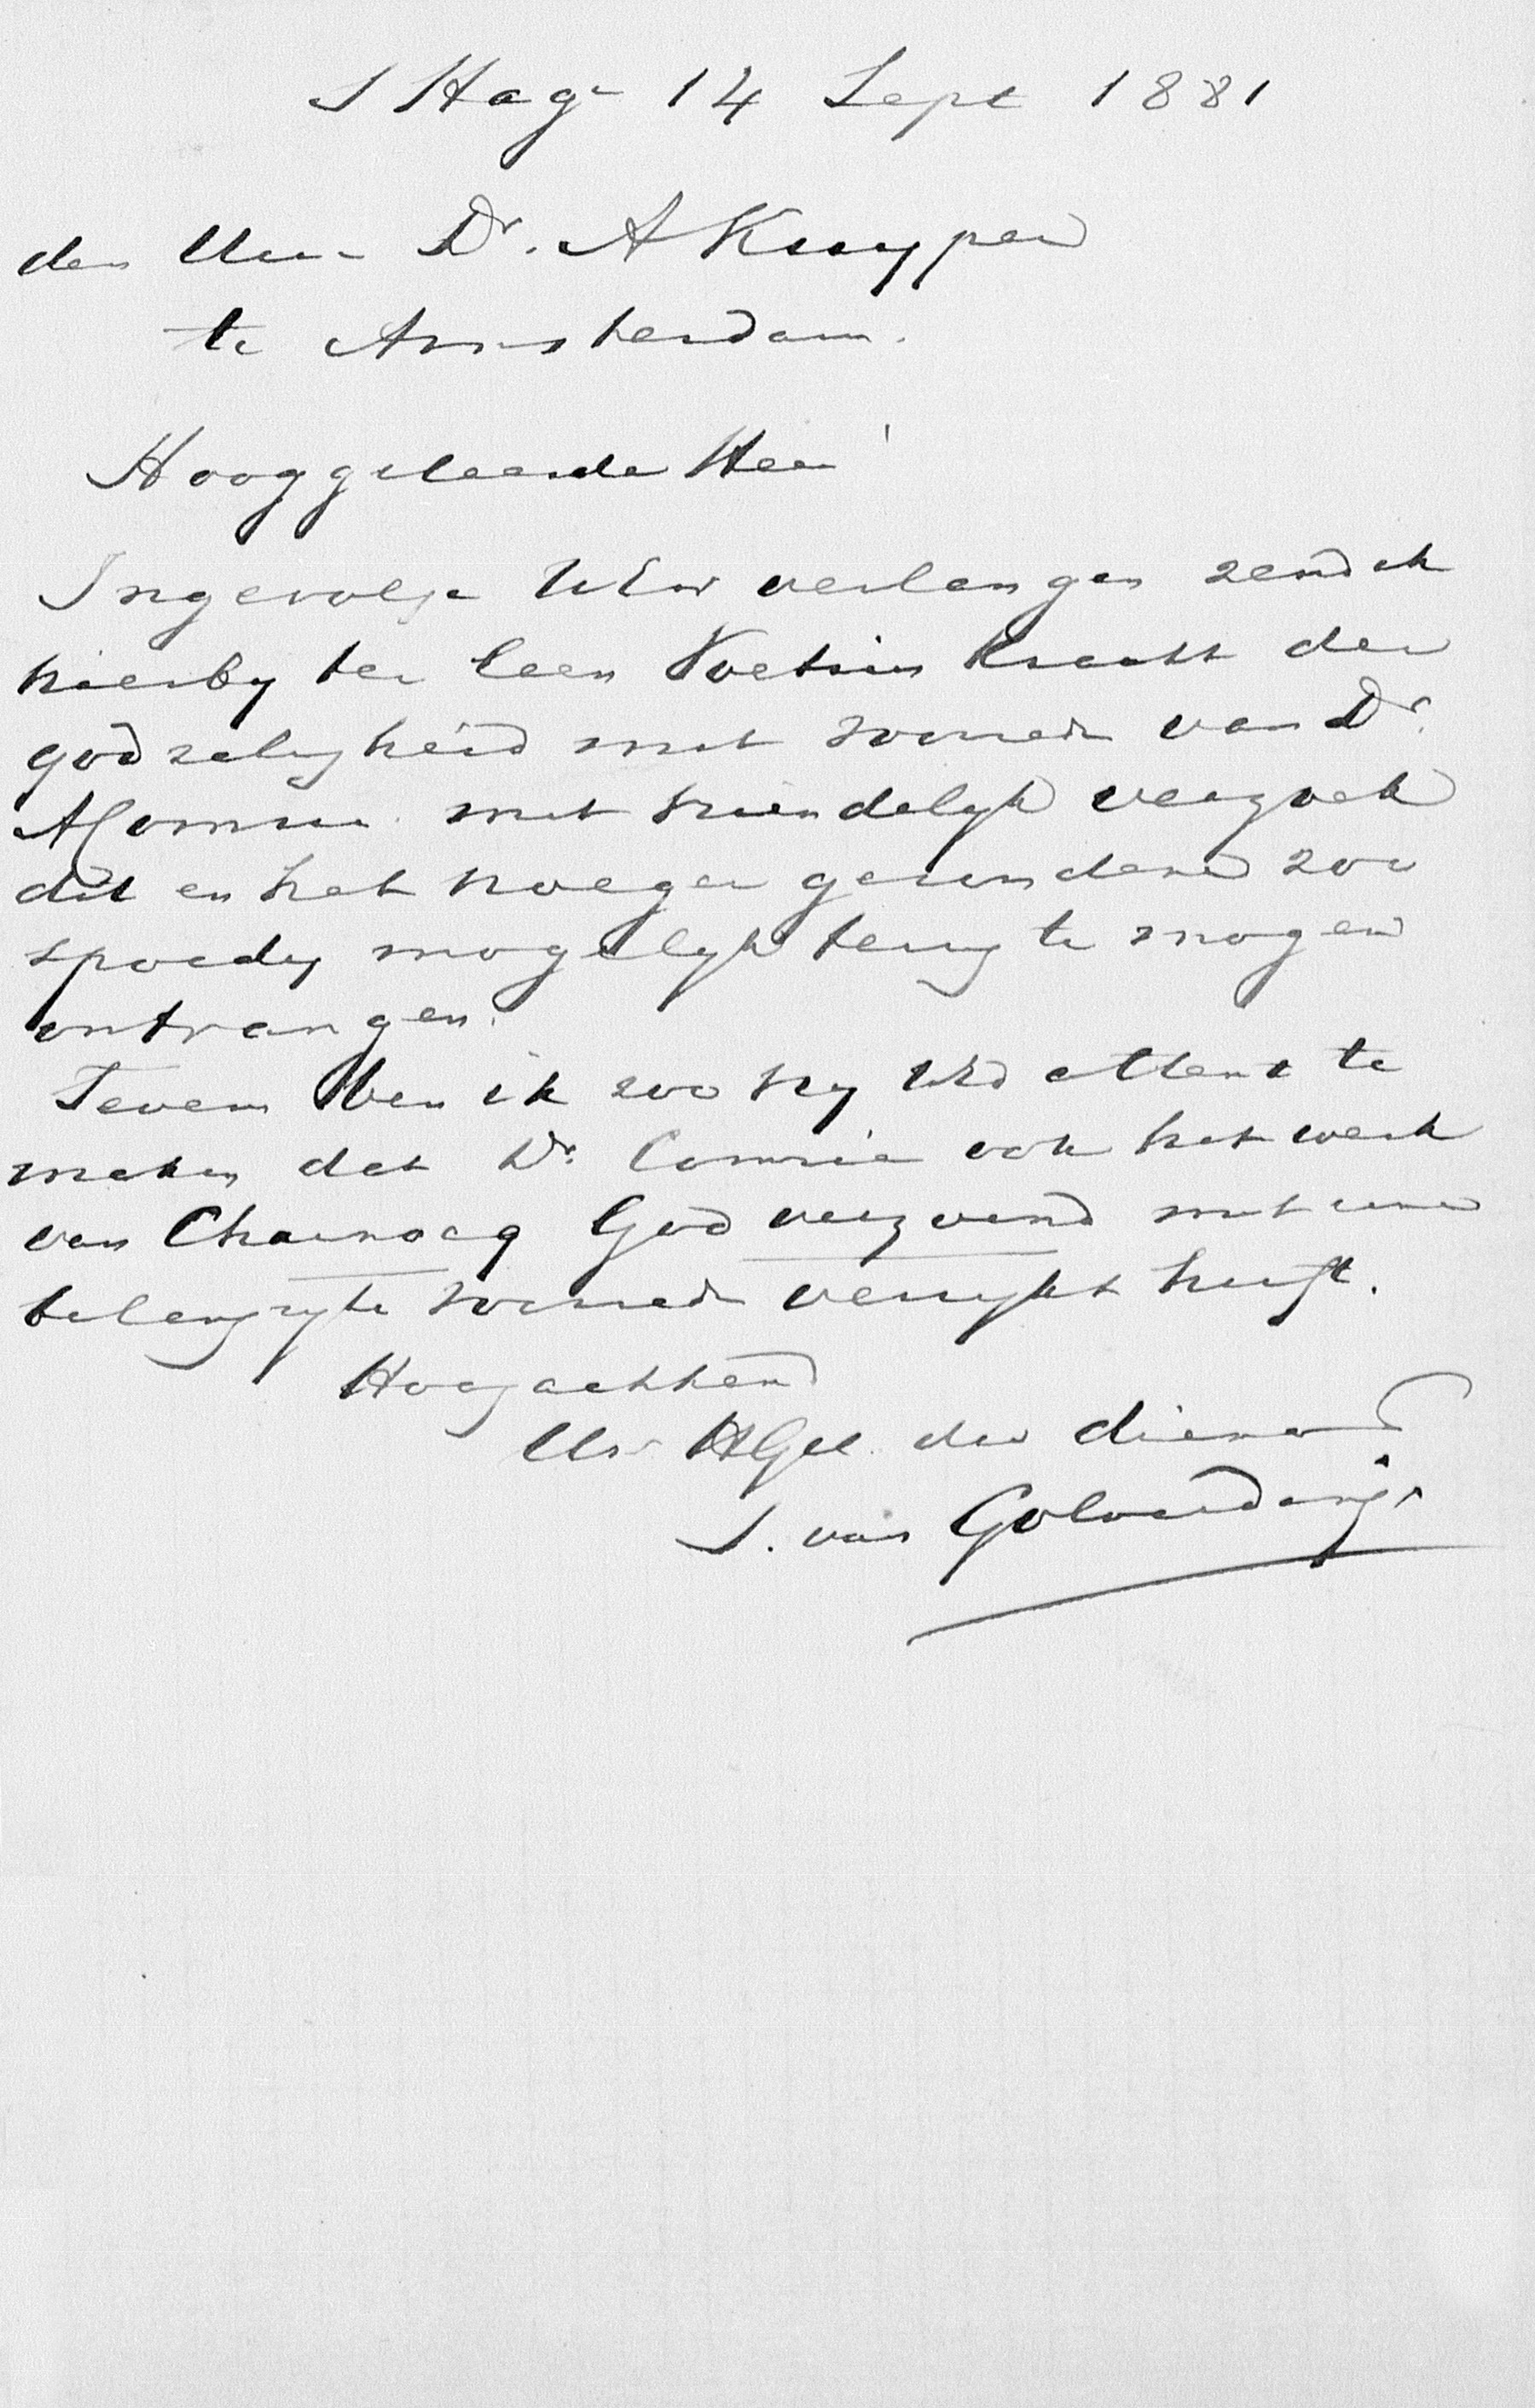 S Hage 14 Sept 1881
den Heer Dr. A Kuyper
te Amsterdam.
Hooggeleerde Heer!
Ingevolge UEw verlangen zend ik
hierby ter leen Voetius kracht der
godzaligheid met voorrede van Dr.
Comrie met vriendelyk verzoek
dit en het vroeger gezondene zoo
spoedig mogelyk terug te mogen
ontvangen.
Tevens ben ik zoo vry UEd attent te
maken dat Dr. Comrie ook het werk
van Charnocq God verzoend met eene
belangryke voorrede verrykt heeft.
Hoogachtend
Uw HGel. dw dienaar
S. van Golverdinge